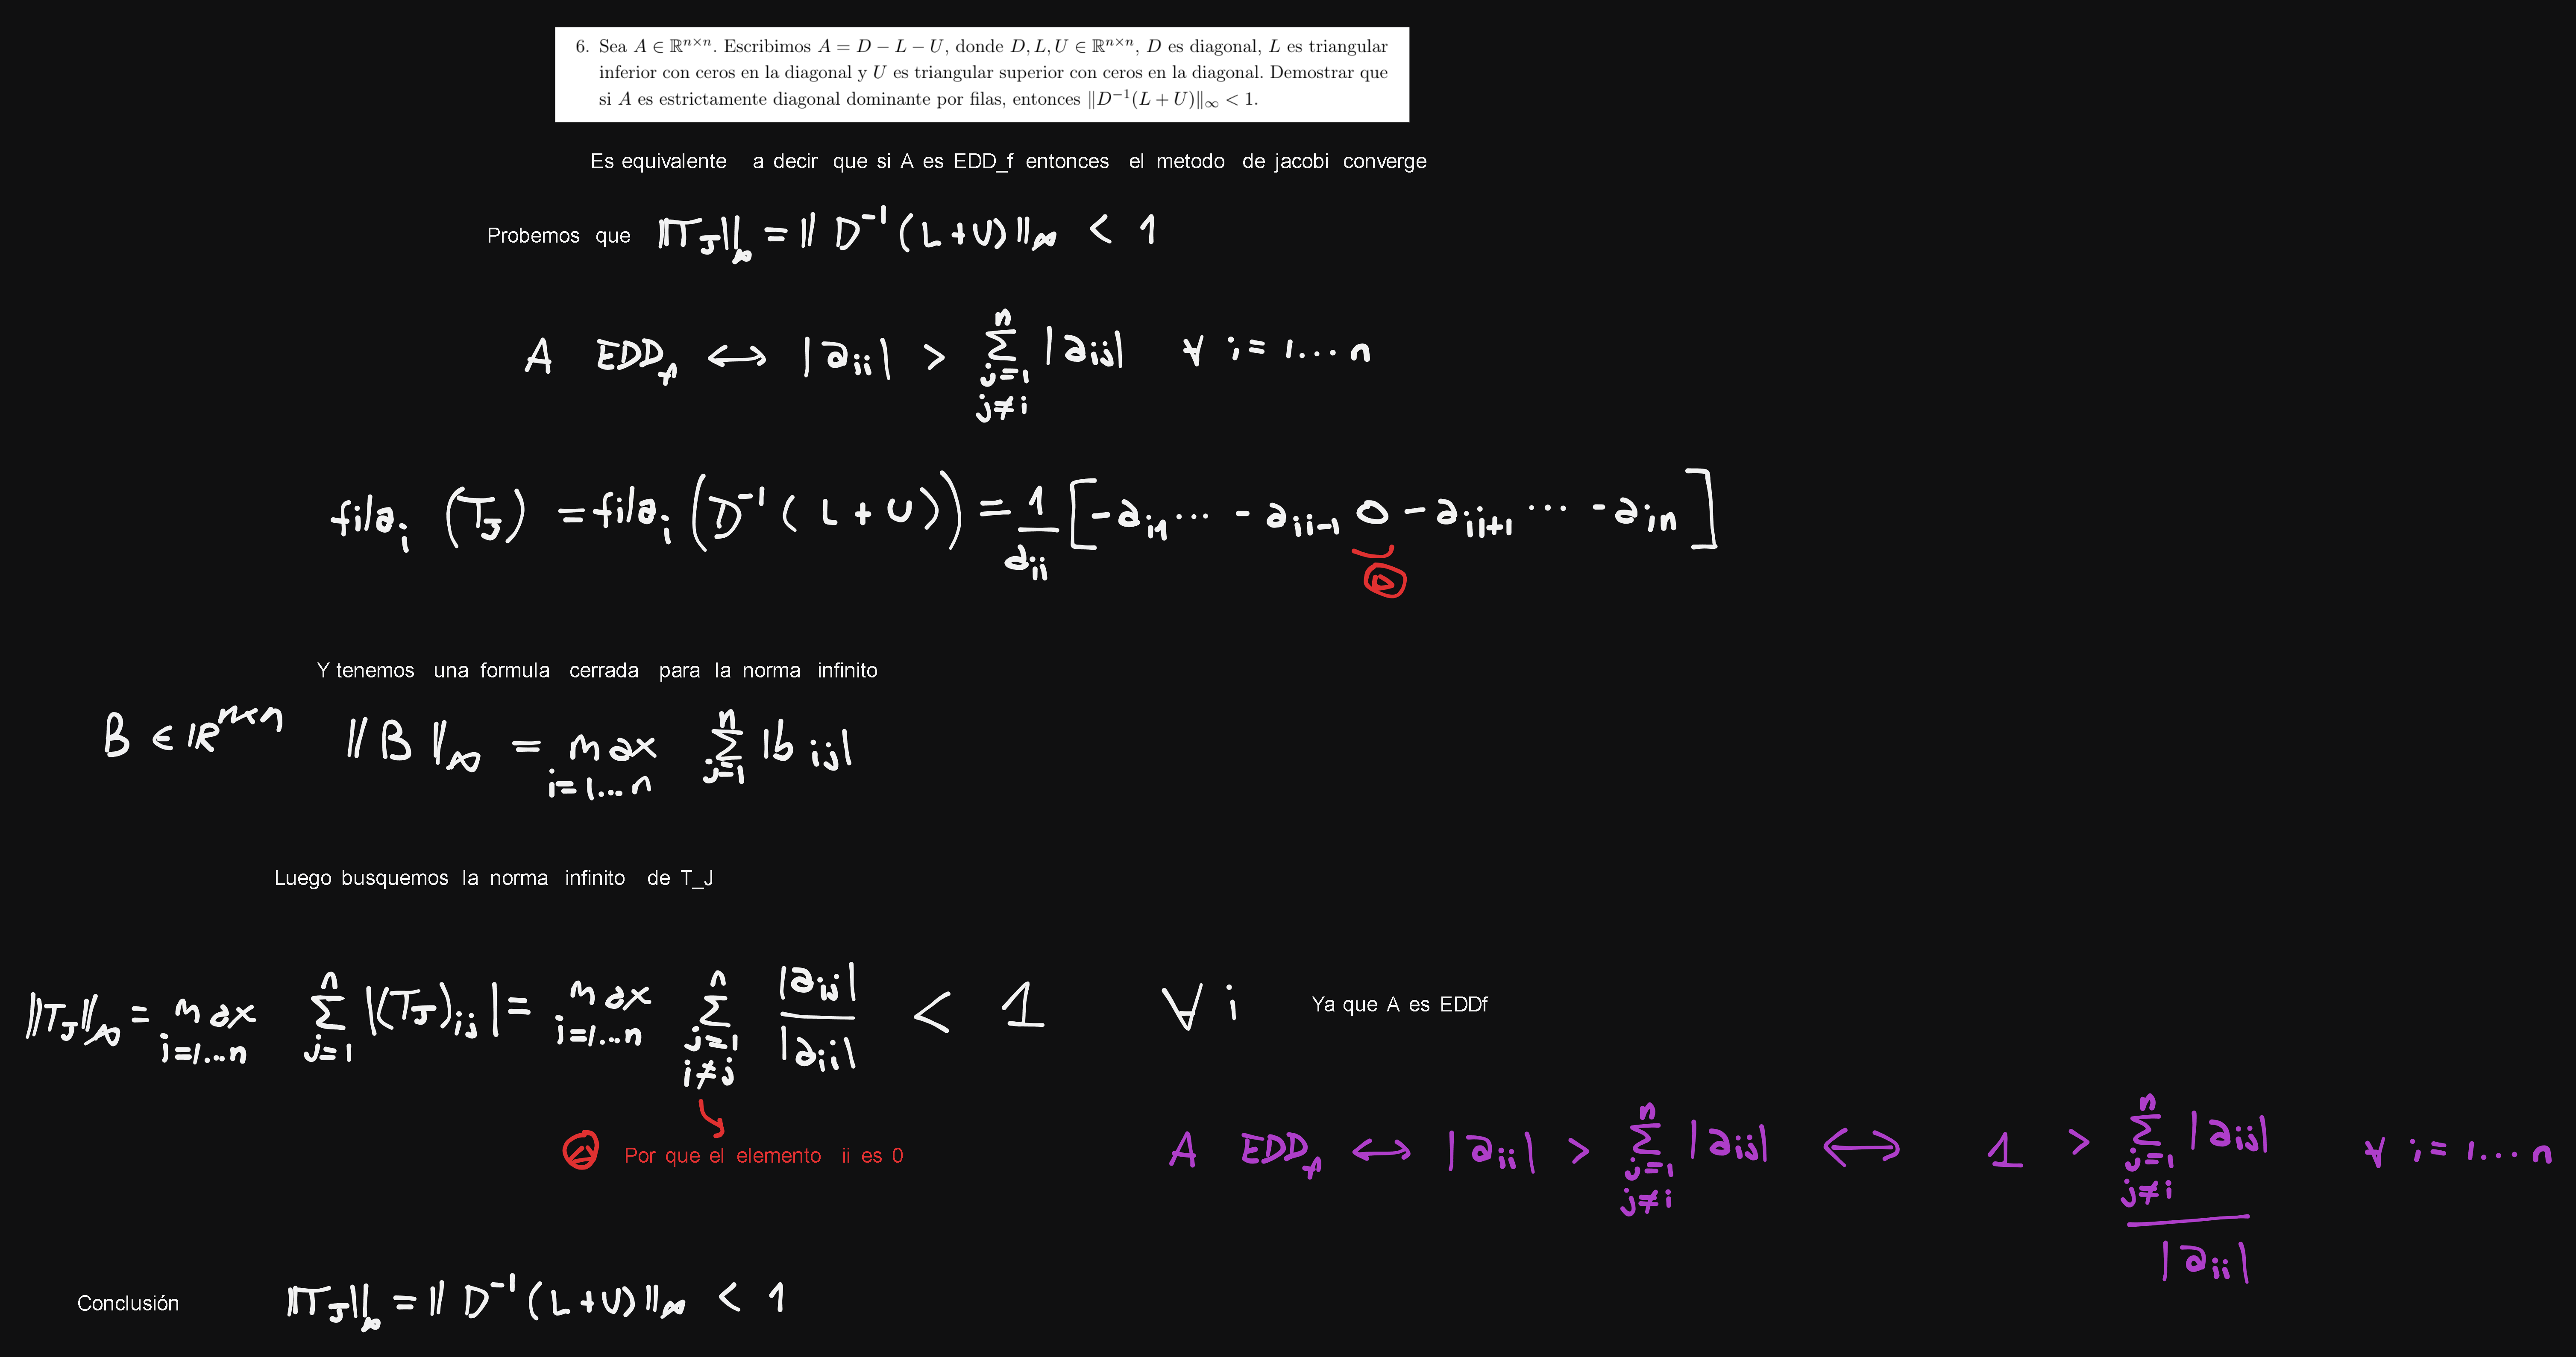 6. Sea A ∈ ℝⁿˣⁿ. Escribimos A = D − L − U, donde D, L, U ∈ ℝⁿˣⁿ, D es diagonal, L es triangular
inferior con ceros en la diagonal y U es triangular superior con ceros en la diagonal. Demostrar que
si A es estrictamente diagonal dominante por filas, entonces ‖D⁻¹(L + U)‖∞ < 1.
Es equivalente a decir que si A es EDD_f entonces el metodo de jacobi converge
Probemos que ‖T_J‖_∞ = ‖D⁻¹(L+U)‖_∞ < 1
A EDD_f ↔ |a_ii| > Σ_{j=1, j≠i}^{n} |a_ij| ∀ i=1...n
fila_i (T_J) = fila_i (D⁻¹(L+U)) = 1/a_ii [-a_i1 ... -a_ii-1 0 -a_ii+1 ... -a_in]
Y tenemos una formula cerrada para la norma infinito
B ∈ ℝⁿˣⁿ ‖B‖_∞ = max_{i=1...n} Σ_{j=1}^{n} |b_ij|
Luego busquemos la norma infinito de T_J
‖T_J‖_∞ = max_{i=1...n} Σ_{j=1}^{n} |(T_J)_ij| = max_{i=1...n} Σ_{j=1, i≠j}^{n} |a_ij|/|a_ii| < 1 ∀ i Ya que A es EDDf
Por que el elemento ii es 0
A EDD_f ↔ |a_ii| > Σ_{j=1, j≠i}^{n} |a_ij| ⟷ 1 > Σ_{j=1, j≠i}^{n} |a_ij| / |a_ii| ∀ i=1...n
Conclusión ‖T_J‖_∞ = ‖D⁻¹(L+U)‖_∞ < 1